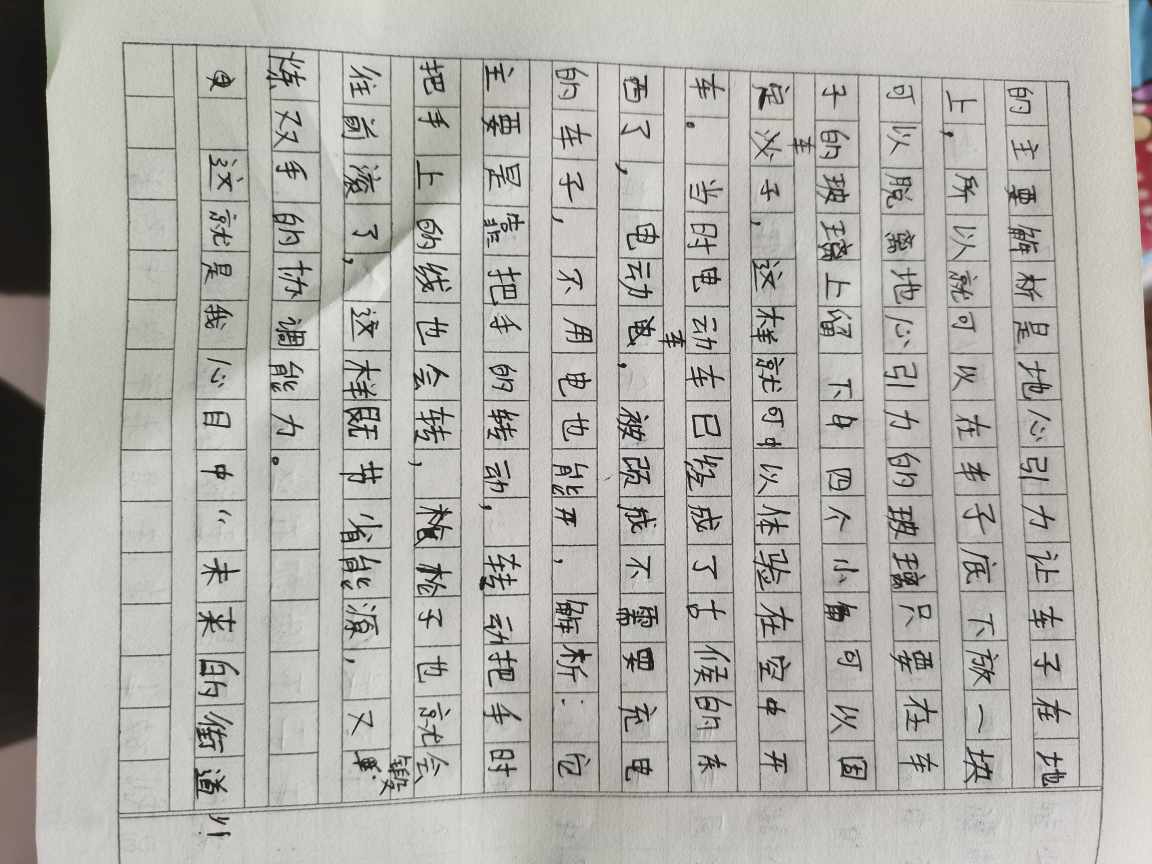 的主要解析是地心引力让车子在地
上，所以就可以在车子底下放一块
可以脱离地心引力的玻璃只要在车
子的玻璃上留下四个小角可以固
定车子，这样就可以体验在空中开
车。当时电动车已经成了古候的东
西了，电动车，被成不需要充电
的车子，不用电也能开，解析：它
主要是靠把手的转动，转动把手时
把手上的线也会转，枪子也就会
往前滚了，这样既节省能源，又锻
炼双手的协调能力。
这就是我心目中“未来的街道”